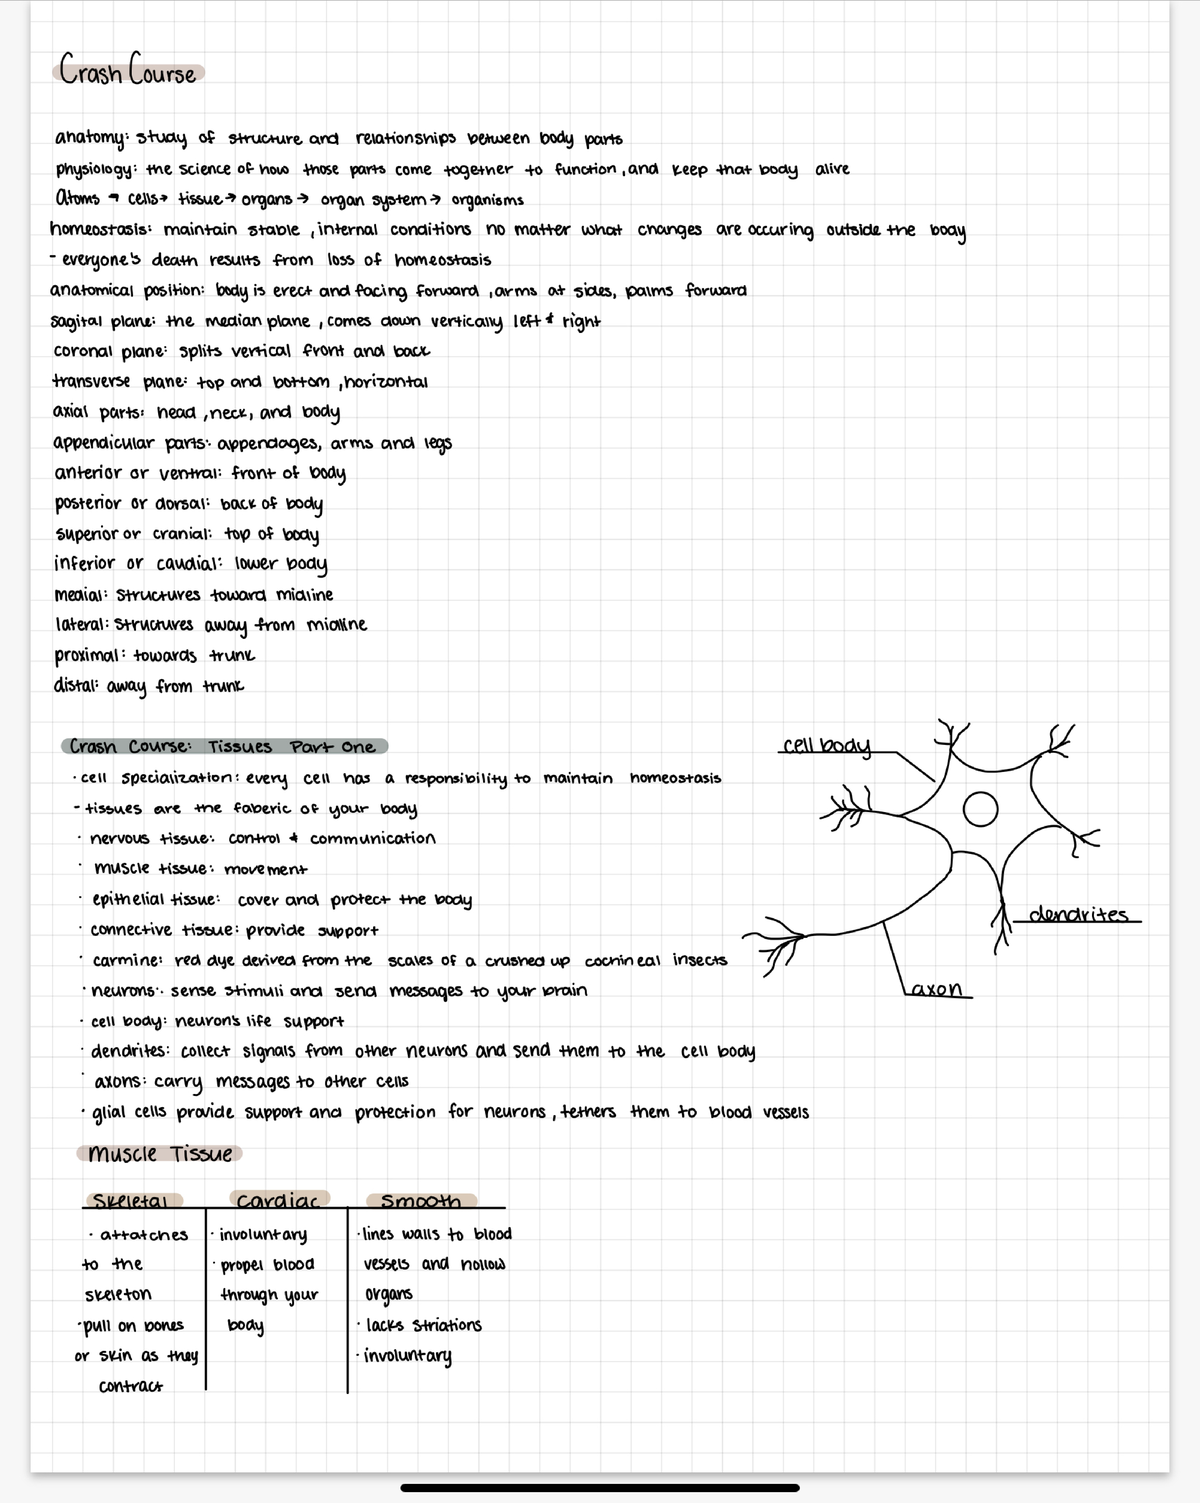 Crash Course
anatomy: study of structure and relationships between body parts
physiology: the science of how those parts come together to function, and keep that body alive
Atoms → cells → tissue → organs → organ system → organisms
homeostasis: maintain stable, internal conditions no matter what changes are occuring outside the body
- everyone's death results from loss of homeostasis
anatomical position: body is erect and facing forward, arms at sides, palms forward
sagital plane: the median plane, comes down vertically left & right
coronal plane: splits vertical front and back
transverse plane: top and bottom, horizontal
axial parts: head, neck, and body
appendicular parts: appendages, arms and legs
anterior or ventral: front of body
posterior or dorsal: back of body
superior or cranial: top of body
inferior or caudial: lower body
medial: structures toward midline
lateral: structures away from midline
proximal: towards trunk
distal: away from trunk
Crash Course: Tissues Part One
· cell specialization: every cell has a responsibility to maintain homeostasis
- tissues are the faberic of your body
· nervous tissue: control & communication
· muscle tissue: movement
· epithelial tissue: cover and protect the body
· connective tissue: provide support
· carmine: red dye derived from the scales of a crushed up cochineal insects
· neurons: sense stimuli and send messages to your brain
· cell body: neuron's life support
· dendrites: collect signals from other neurons and send them to the cell body
· axons: carry messages to other cells
· glial cells provide support and protection for neurons, tethers them to blood vessels
cell body
dendrites
axon
Muscle Tissue
Skeletal
· attatches
to the
skeleton
· pull on bones
or skin as they
contract
Cardiac
· involuntary
· propel blood
through your
body
Smooth
· lines walls to blood
vessels and hollow
organs
· lacks striations
· involuntary